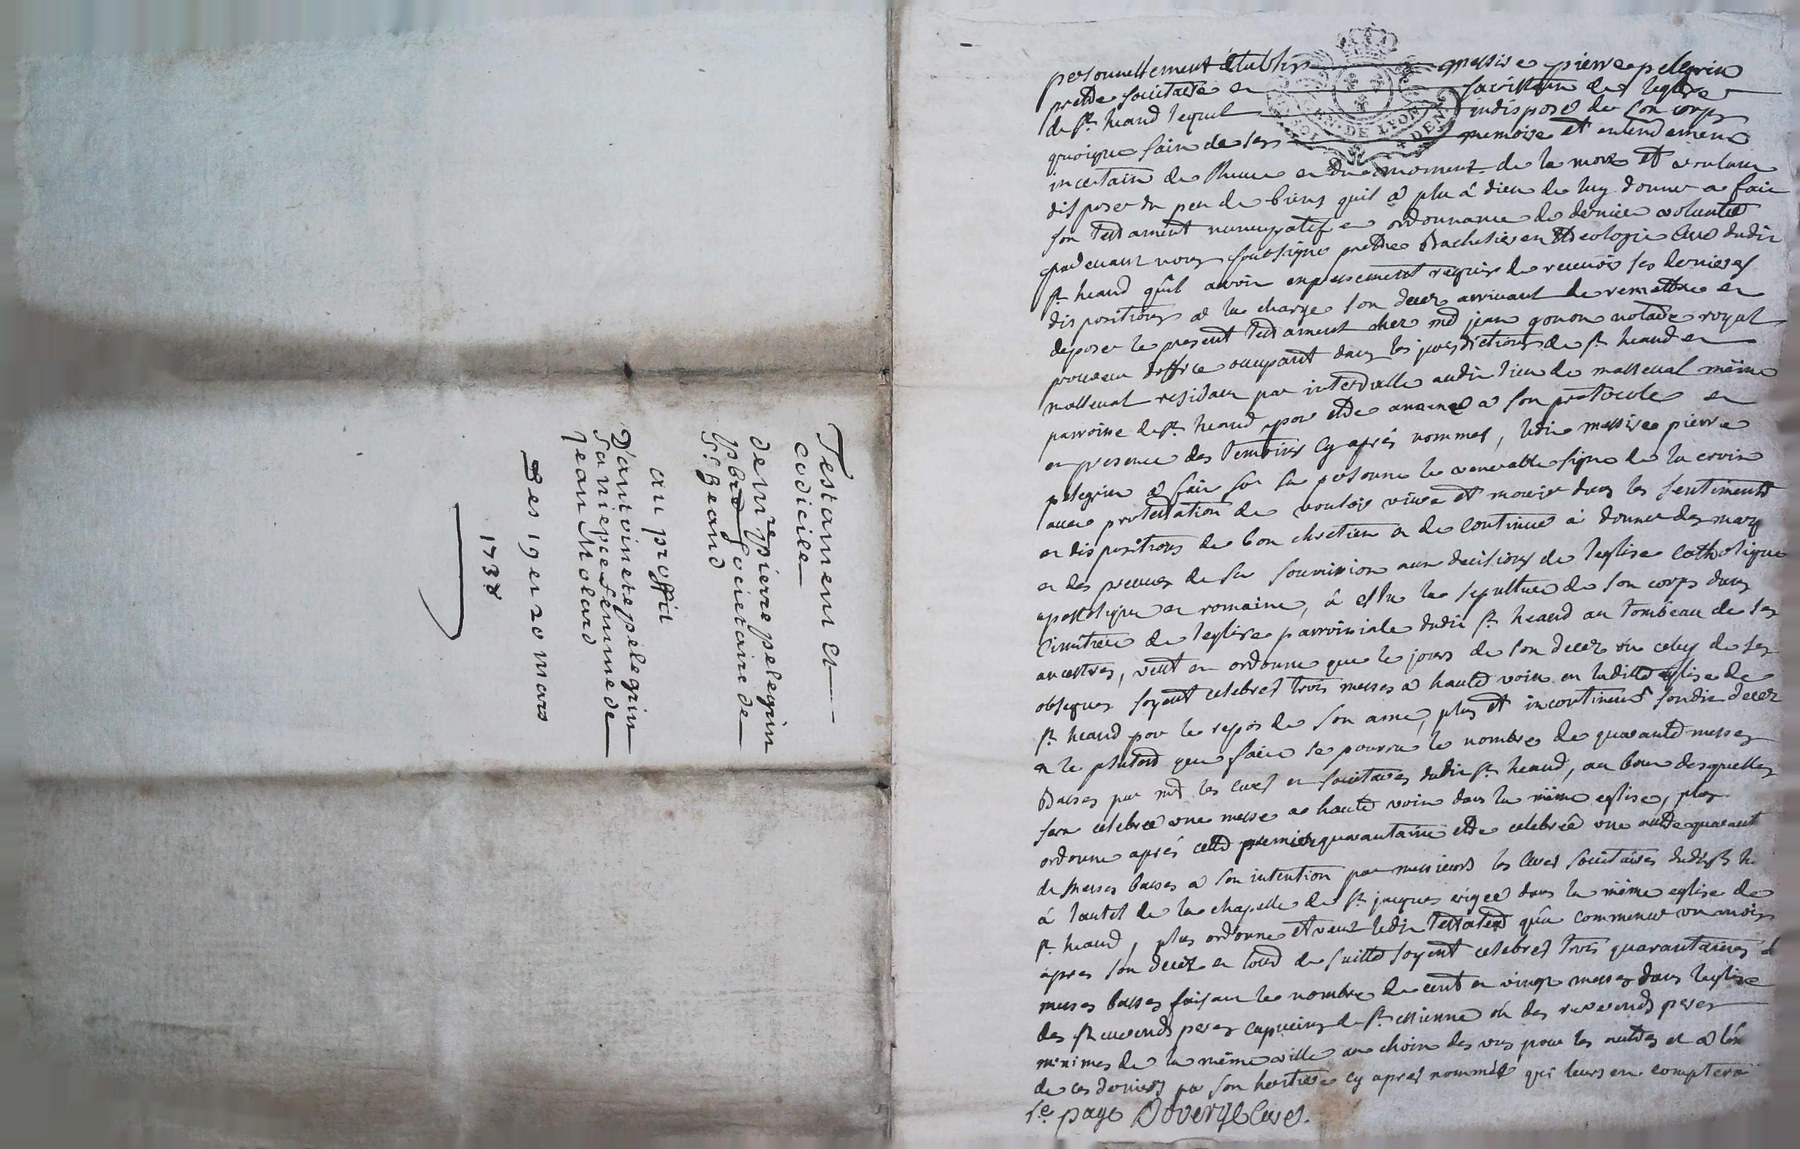 Testament Et
codicile
de m.re pierre pelegrin
pbre Societaire de
St. heand
au proffit
D'antoinete pelegrin
Sa niepce femme de
Jean Molard
Des 19 er 20 mars
1738
GEN. DE LYON
DEN
personnellement établis messire pierre pelegrin
prêtre societaire en de l'eglise
de st. heand lequel indisposé de son corps
quoique sain de ses memoire et entendement
incertain de l'heure et du moment de la mort et voulant
disposer du peu de biens quil a plu à dieu de luy donner a fait
son testament nuncupatif et ordonnance de derniere volonté
pardevant nous soussigné prêtre Bachelier en théologie Curé dudit
st. heand qu'il auroit expressement requis de recevoir ses dernieres
dispositions à la charge son decez arrivant de remettre et
deposer le present testament chez md jean gonon notaire royal
pourveu d'office occupant dans les jurisdictions de st. heand et
malleval residant par intervalle audit lieu de malleval même
parroisse de st. heand pour être annexé a son protocole et
en presence des temoins cy après nommés, ledit messire pierre
pelegrin a fait sur sa personne le venerable signe de la croix
avec protestation de vouloir vivre et mourir dans les sentiments
et dispositions de bon chretien et de continuer à donner des marq
et des preuves de sa soumission aux decisions de l'eglise Catholique
apostolique et romaine, à elû la sepulture de son corps dans
Cimitiere de l'eglise parroissiale dudit st. heand au tombeau de ses
ancestres, veut et ordonne que le jour de son decez ou celuy de ses
obseques soyent celebrés trois messes a haute voix en ladite eglise de
st. heand pour le repos de son ame, plus et incontinent sondit decez
et le plutot que faire se pourra le nombre de quarante messes
Basses par md les curé et societaires dudit st. heand, au bout desquelles
sera celebrée une messe a haute voix dans la même eglise, plus
ordonne après cette premiere quarantaine être celebrée une autre quarant
de Messes basses a son intention par messieurs les Curé societaires dudit st. h.
à l'autel de la chapelle de st. jacques erigée dans la même eglise de
st. heand, plus ordonne et veut ledit testateur qu'a commencer un mois
après son decez et tout de suitte soyent celebrés trois quarantaines d
messes basses faisant le nombre de cent et vingt messes dans l'eglise
des reverends peres capucins de st. etienne où des reverends peres
minimes de la même ville au choix des uns pour les autres et a l'
de ces derniers par son heritiere cy apres nommée qui leurs en comptera
1e. page Duverge Curé.